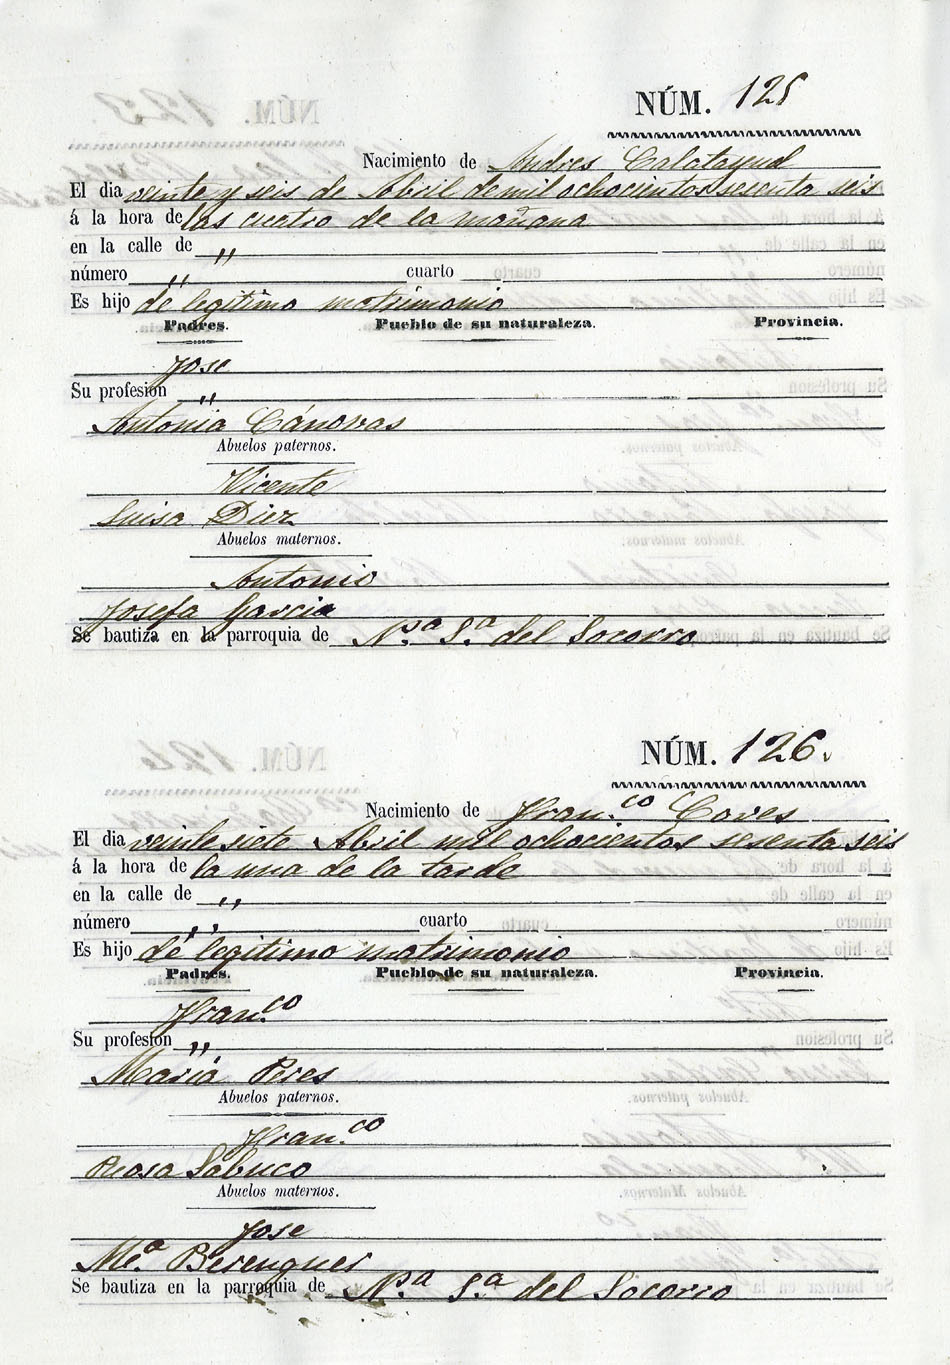 NÚM. 125
Nacimiento de Andres Calatayud
El dia veinte y seis de Abril de mil ochocientos sesenta seis
á la hora de las cuatro de la mañana
en la calle de „
número „ cuarto
Es hijo de legitimo matrimonio
Padres. Pueblo de su naturaleza. Provincia.
Jose
Su profesion „
Antonia Cánovas
Abuelos paternos.
Vicente
Luisa Diez
Abuelos maternos.
Antonio
Josefa Garcia
Se bautiza en la parroquia de N.ª S.ª del Socorro
NÚM. 126.
Nacimiento de Fran.co Coves
El dia veinte siete Abril mil ochocientos sesenta seis
á la hora de la una de la tarde
en la calle de „
número „ cuarto
Es hijo de legitimo matrimonio
Padres. Pueblo de su naturaleza. Provincia.
Fran.co
Su profesion „
Maria Peres
Abuelos paternos.
Fran.co
Rosa Sabuco
Abuelos maternos.
Jose
M.ª Berenguer
Se bautiza en la parroquia de N.ª S.ª del Socorro